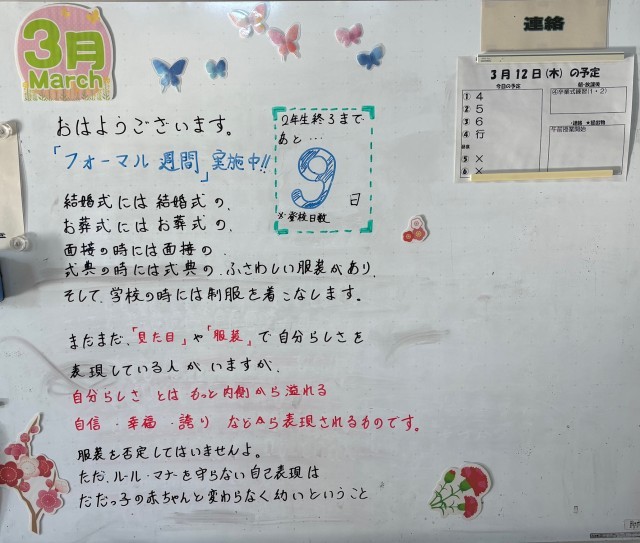 3月
March
連絡
3月12日(木)の予定
今日の予定
① 4
② 5
③ 6
④ 行
⑤ ×
⑥ ×
④卒業式練習(1・2)
午前授業開始
おはようございます。
「フォーマル 週間」実施中!!
2年生終了まで
あと…
9
日
※登校日数
結婚式には結婚式の、
お葬式にはお葬式の、
面接の時には面接の
式典の時には式典の、ふさわしい服装があり、
そして、学校の時には制服を着こなします。
まだまだ、「見た目」や「服装」で自分らしさを
表現している人がいますが、
自分らしさとはもっと内側から溢れる
自信・幸福・誇りなどから表現されるものです。
服装を否定してはいませんよ。
ただ、ルール・マナーを守らない自己表現は
だだっ子の赤ちゃんと変わらなく幼いということ